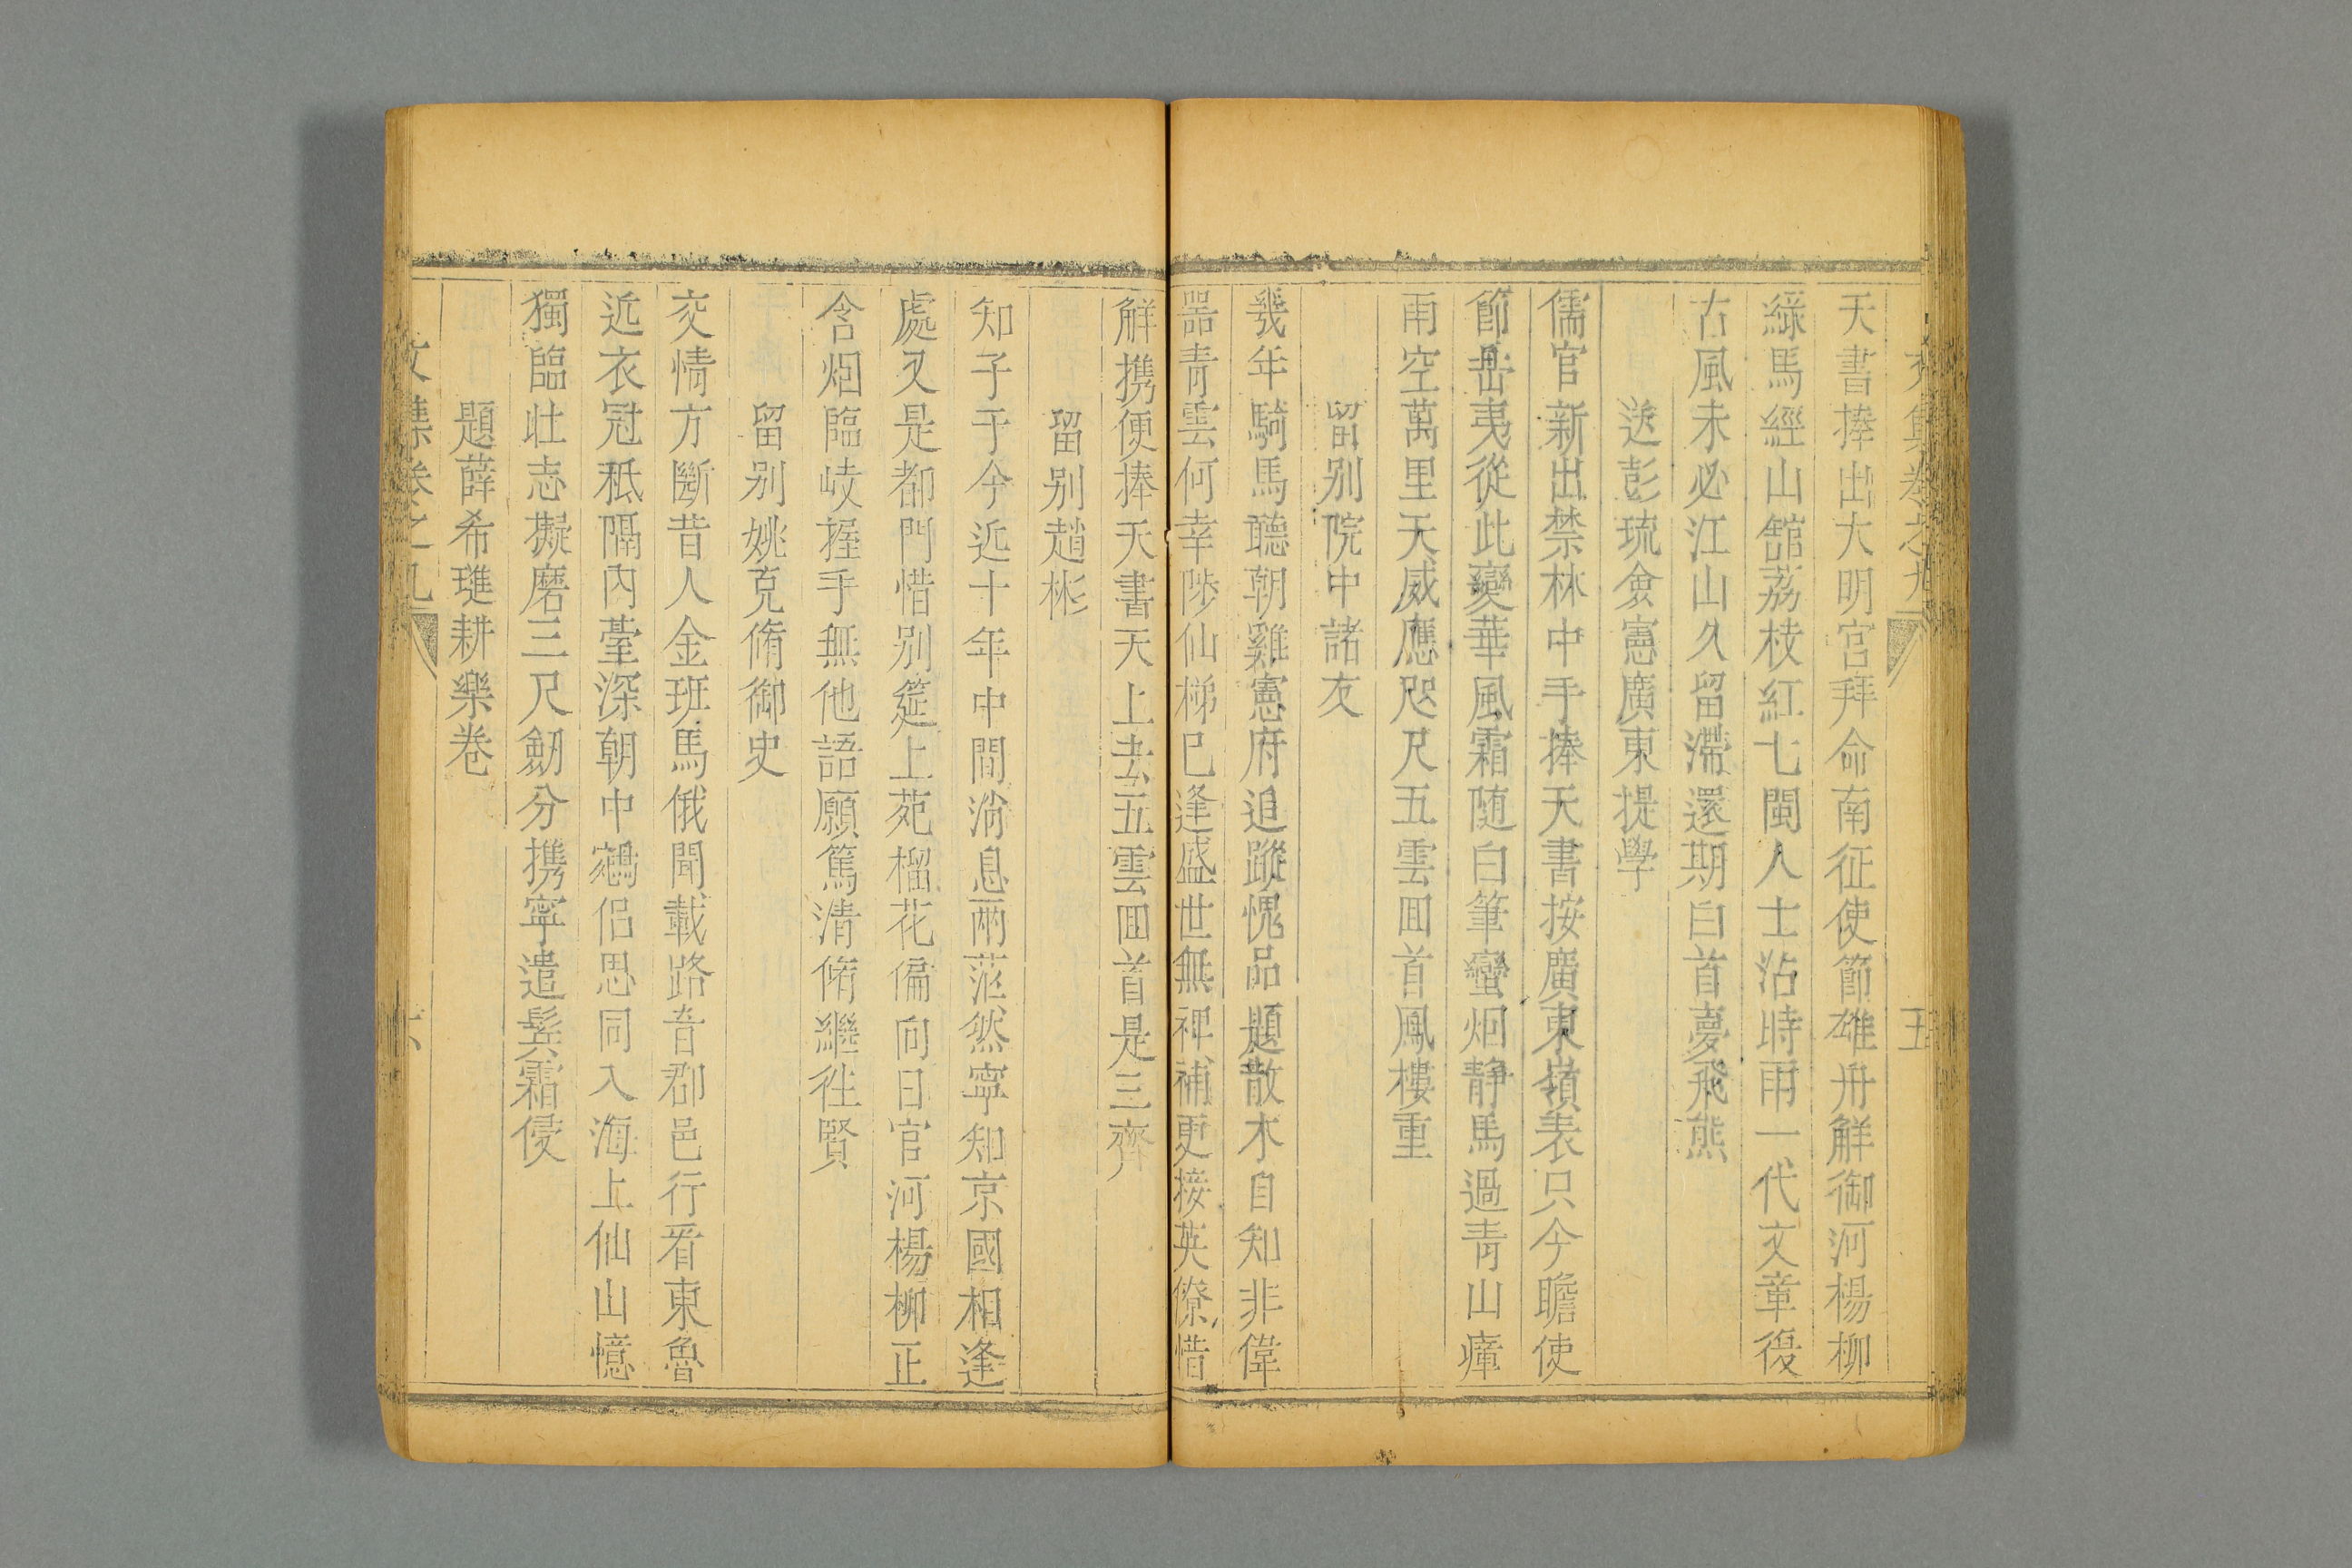 文集卷之九
五
天書捧出大明宮拜命南征使節雄舟解御河楊柳
綠馬經山舘荔枝紅七閩人士沾時雨一代文章復
古風未必江山久留滯還期白首夢飛熊
送彭琉僉憲廣東提學
儒官新出禁林中手捧天書按廣東嶺表只今瞻使
節島夷從此變華風霜随白筆蠻烟静馬過青山瘴
雨空萬里天威應咫尺五雲囬首鳳樓重
留别院中諸友
幾年騎馬聽朝雞憲府追蹤愧品題散木自知非偉
器青雲何幸陟仙梯已逢盛世無裨補更接英僚惜
解携便捧天書天上去五雲囬首是三齊
留别趙彬
知子于今近十年中間消息兩茫然寧知京國相逢
處又是都門惜别筵上苑榴花偏向日官河楊柳正
含烟臨岐握手無他語願篤清脩繼徃賢
留别姚克脩御史
交情方斷昔人金班馬俄聞載路音郡邑行看東魯
近衣冠秪隔内臺深朝中鵷侣思同入海上仙山憶
獨臨壮志擬磨三尺劒分携寧遣鬂霜侵
題薛希璡耕樂卷
文集卷之九
六